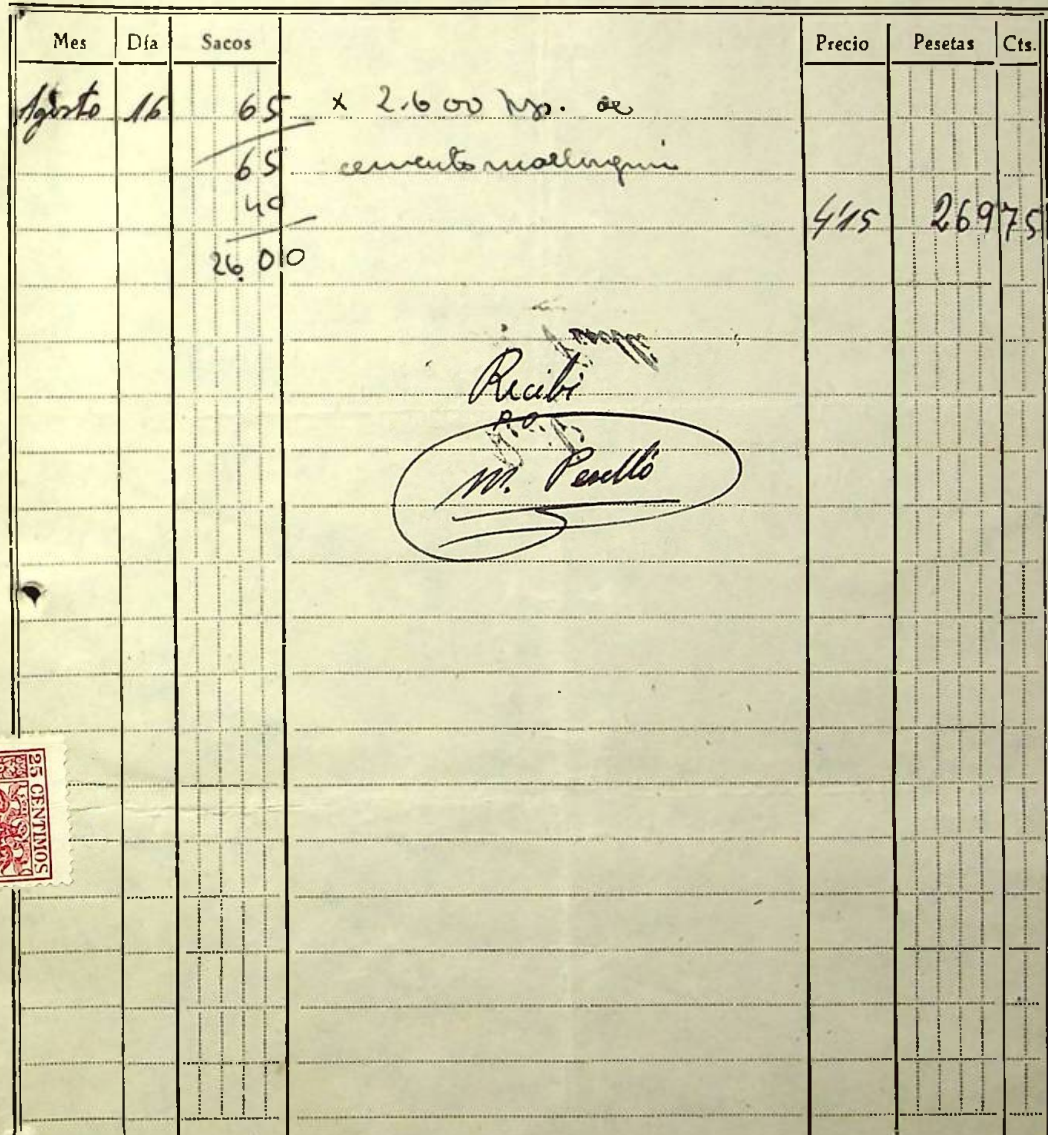 Mes Día Sacos Precio Pesetas Cts.
Agosto 16 65 x 2.600 kgs. de
65 cemento mallorquin
40 4'15 269 75
26.00
Recibí
P.O.
M. Perelló
25 CENTIMOS